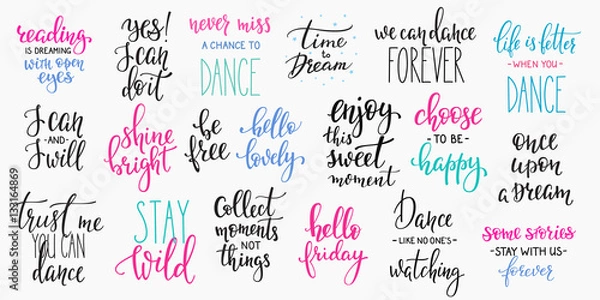 reading
IS DREAMING
with open
eyes
yes!
I can
do it
never miss
A CHANCE TO
DANCE
time
to
Dream
we can dance
FOREVER
life is better
- WHEN YOU -
DANCE
I can
- AND -
I will
shine
bright
be
free
hello
lovely
enjoy
this
sweet
moment
choose
- TO BE -
happy
once
upon
a Dream
trust me
YOU CAN
dance
STAY
wild
Collect
moments
NOT
things
hello
friday
Dance
- LIKE NO ONE'S -
watching
some stories
- STAY WITH US -
forever
Adobe Stock | #133164869